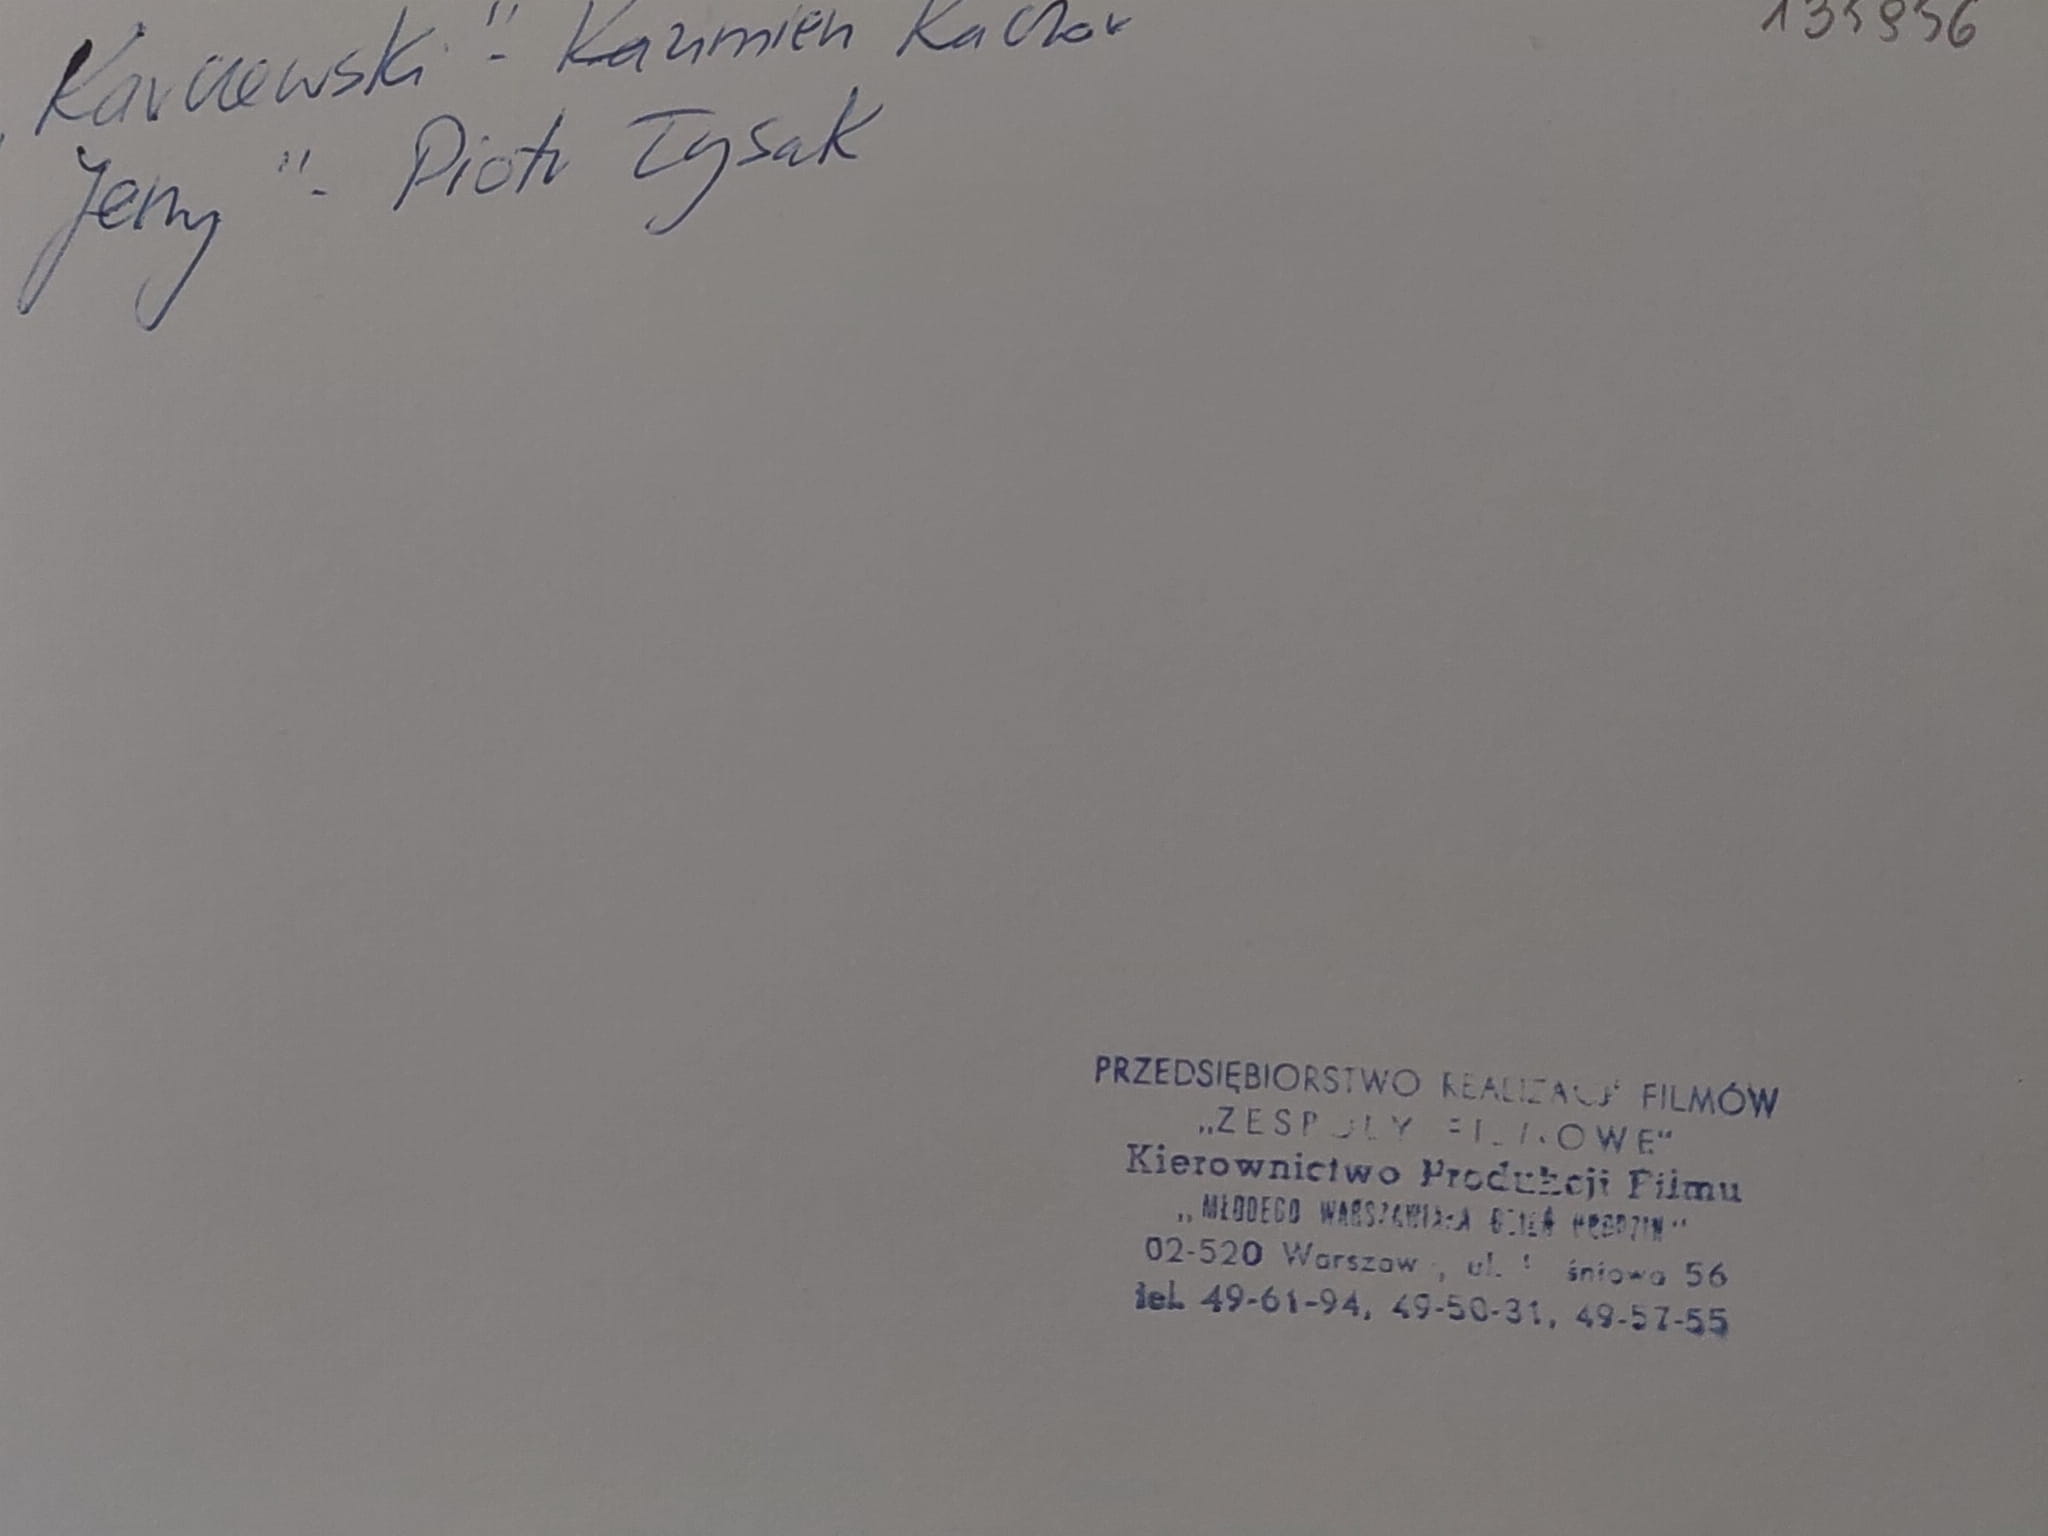 135956
„Karczewski" - Kazimierz Kaczor
„Jerzy" - Piotr Łysak
PRZEDSIĘBIORSTWO REALIZACJI FILMÓW
„ZESPOŁY FILMOWE"
Kierownictwo Produkcji Filmu
„MŁODEGO WARSZAWIAKA DZIEŃ"
02-520 Warszawa, ul. 56
tel. 49-61-94, 49-50-31, 49-57-55